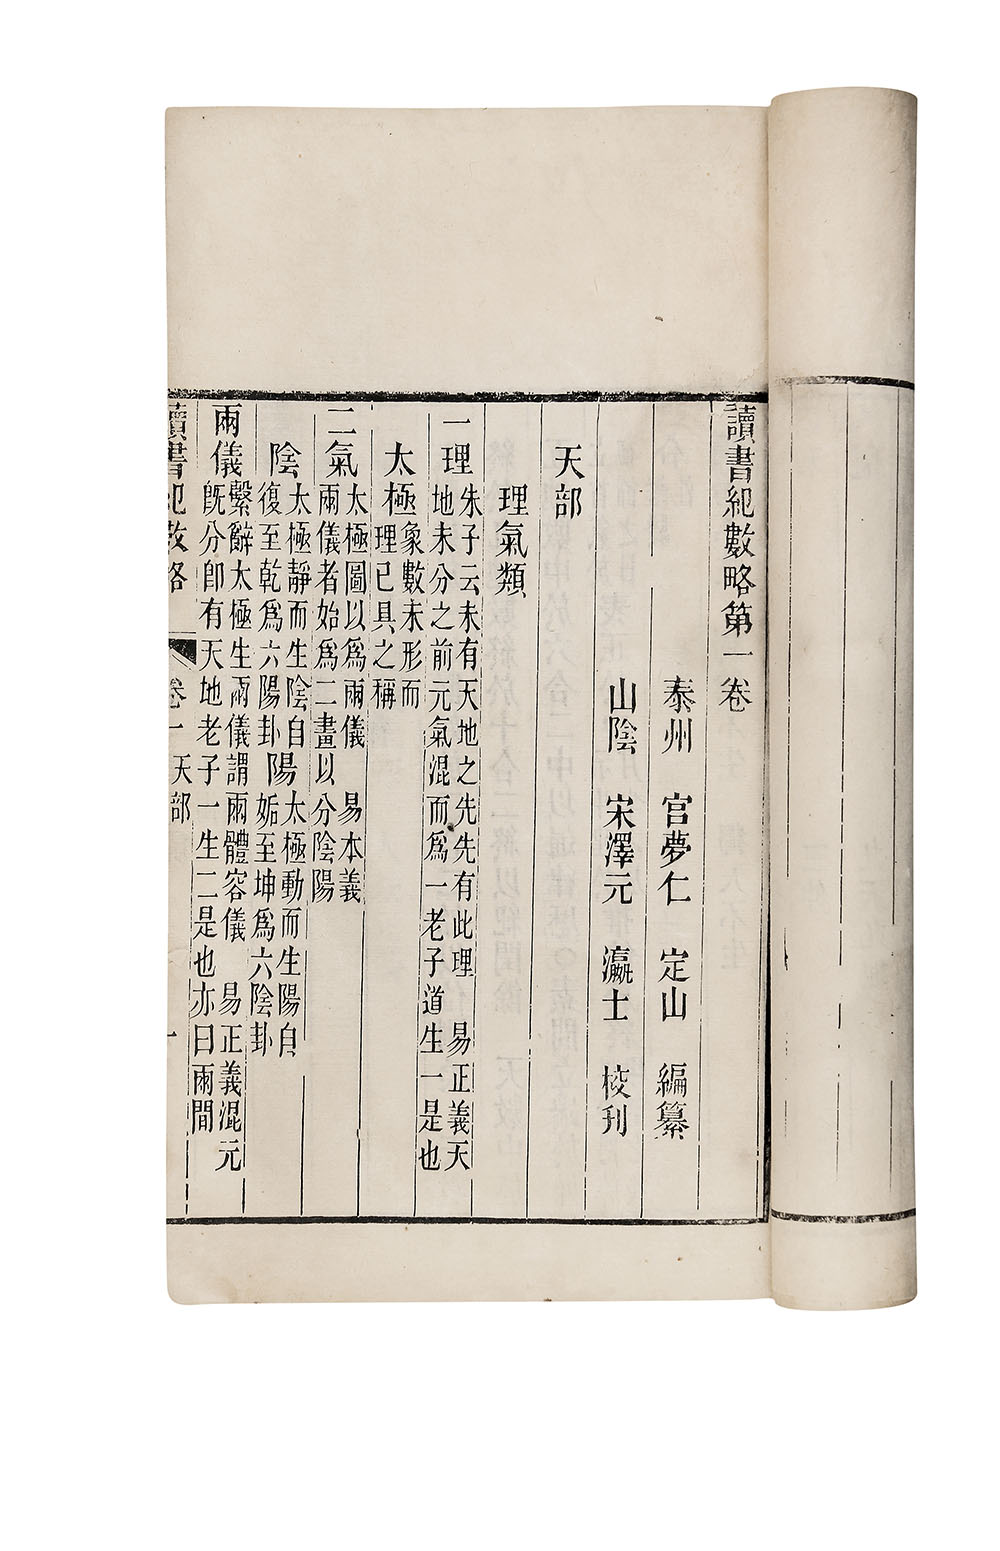 讀書紀數略第一卷
泰州 宮夢仁 定山 編纂
山陰 宋澤元 瀛士 校刊
天部
理氣類
一理 朱子云未有天地之先先有此理 易正義天
地未分之前元氣混而爲一老子道生一是也
太極 象數未形而
理已具之稱
二氣 太極圖以爲兩儀 易本義
兩儀者始爲二畫以分陰陽
陰 太極靜而生陰自
復至乾爲六陽卦
陽 太極動而生陽自
姤至坤爲六陰卦
兩儀 繫辭太極生兩儀謂兩體容儀 易正義混元
旣分卽有天地老子一生二是也亦曰兩間
讀書紀數略 卷一 天部 一